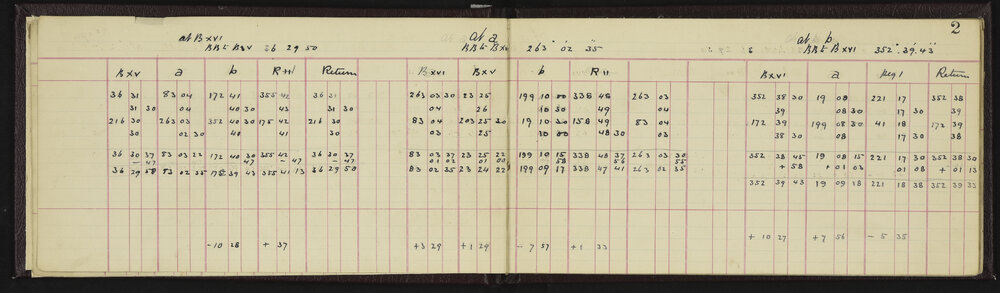 2
at B XVI at a at b
BB to B XV 36 29 50 BB to B XV 263° 02' 35" BB to B XVI 352° 39' 43"
B XV a b R 11 Return B XVI B XV b R 11 B XVI a Peg 1 Return
36 31 83 04 172 41 355 42 36 31 263 03 30 23 25 199 10 00 338 48 263 03 352 38 30 19 08 221 17 352 38
31 30 04 40 30 43 31 30 04 26 10 00 49 04 39 08 30 17 30 39
216 30 263 03 352 40 30 175 42 216 30 83 04 203 25 30 19 10 30 158 49 83 04 172 39 199 08 30 41 18 172 39
30 02 30 40 41 30 03 25 10 00 48 30 03 38 30 08 17 30 38
36 30 37 83 03 22 172 40 30 355 42 36 30 37 83 03 37 23 25 22 199 10 15 338 48 37 263 03 30 352 38 45 19 08 15 221 17 30 352 38 30
- 47 - 47 - 47 - 47 01 02 01 00 58 56 55 + 58 + 01 03 01 08 + 01 13
36 29 58 83 02 35 172 39 43 355 41 13 36 29 50 83 02 35 23 24 22 199 09 17 338 47 41 263 02 35
352 39 43 19 09 18 221 18 38 352 39 33
+ 10 27 + 7 56 - 5 35
- 10 28 + 37 + 3 29 + 1 29 - 7 57 + 1 33